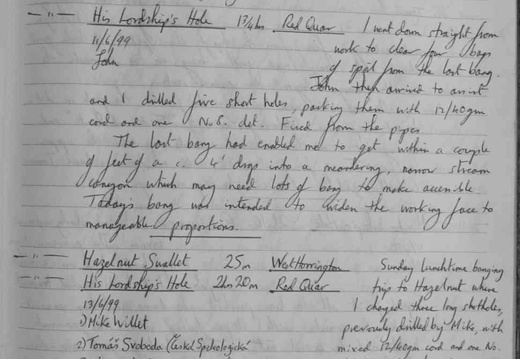 —"— His Lordship's Hole 1¾hrs Red Quar I went down straight from
11/6/99 work to clear four bags
John of spoil from the last bang.
John then arrived to assist
and I drilled five short holes, packing them with 12/40gm
cord and one No.8. det. Fired from the pipes
The last bang had enabled me to get within a couple
of feet of a c. 4' drop into a meandering, narrow stream
canyon which may need lots of bang to make accessible
Today's bang was intended to widen the working face to
manageable proportions.
—"— Hazelnut Swallet 25m Walthorrington Sunday lunchtime banging
—"— His Lordship's Hole 2hrs 20m Red Quar trip to Hazelnut where
13/6/99 I charged three long shotholes,
1) Mike Willet previously drilled by Mike, with
2) Tomáš Svoboda (Česká Speleologická mixed 12/40gm cord and one No.